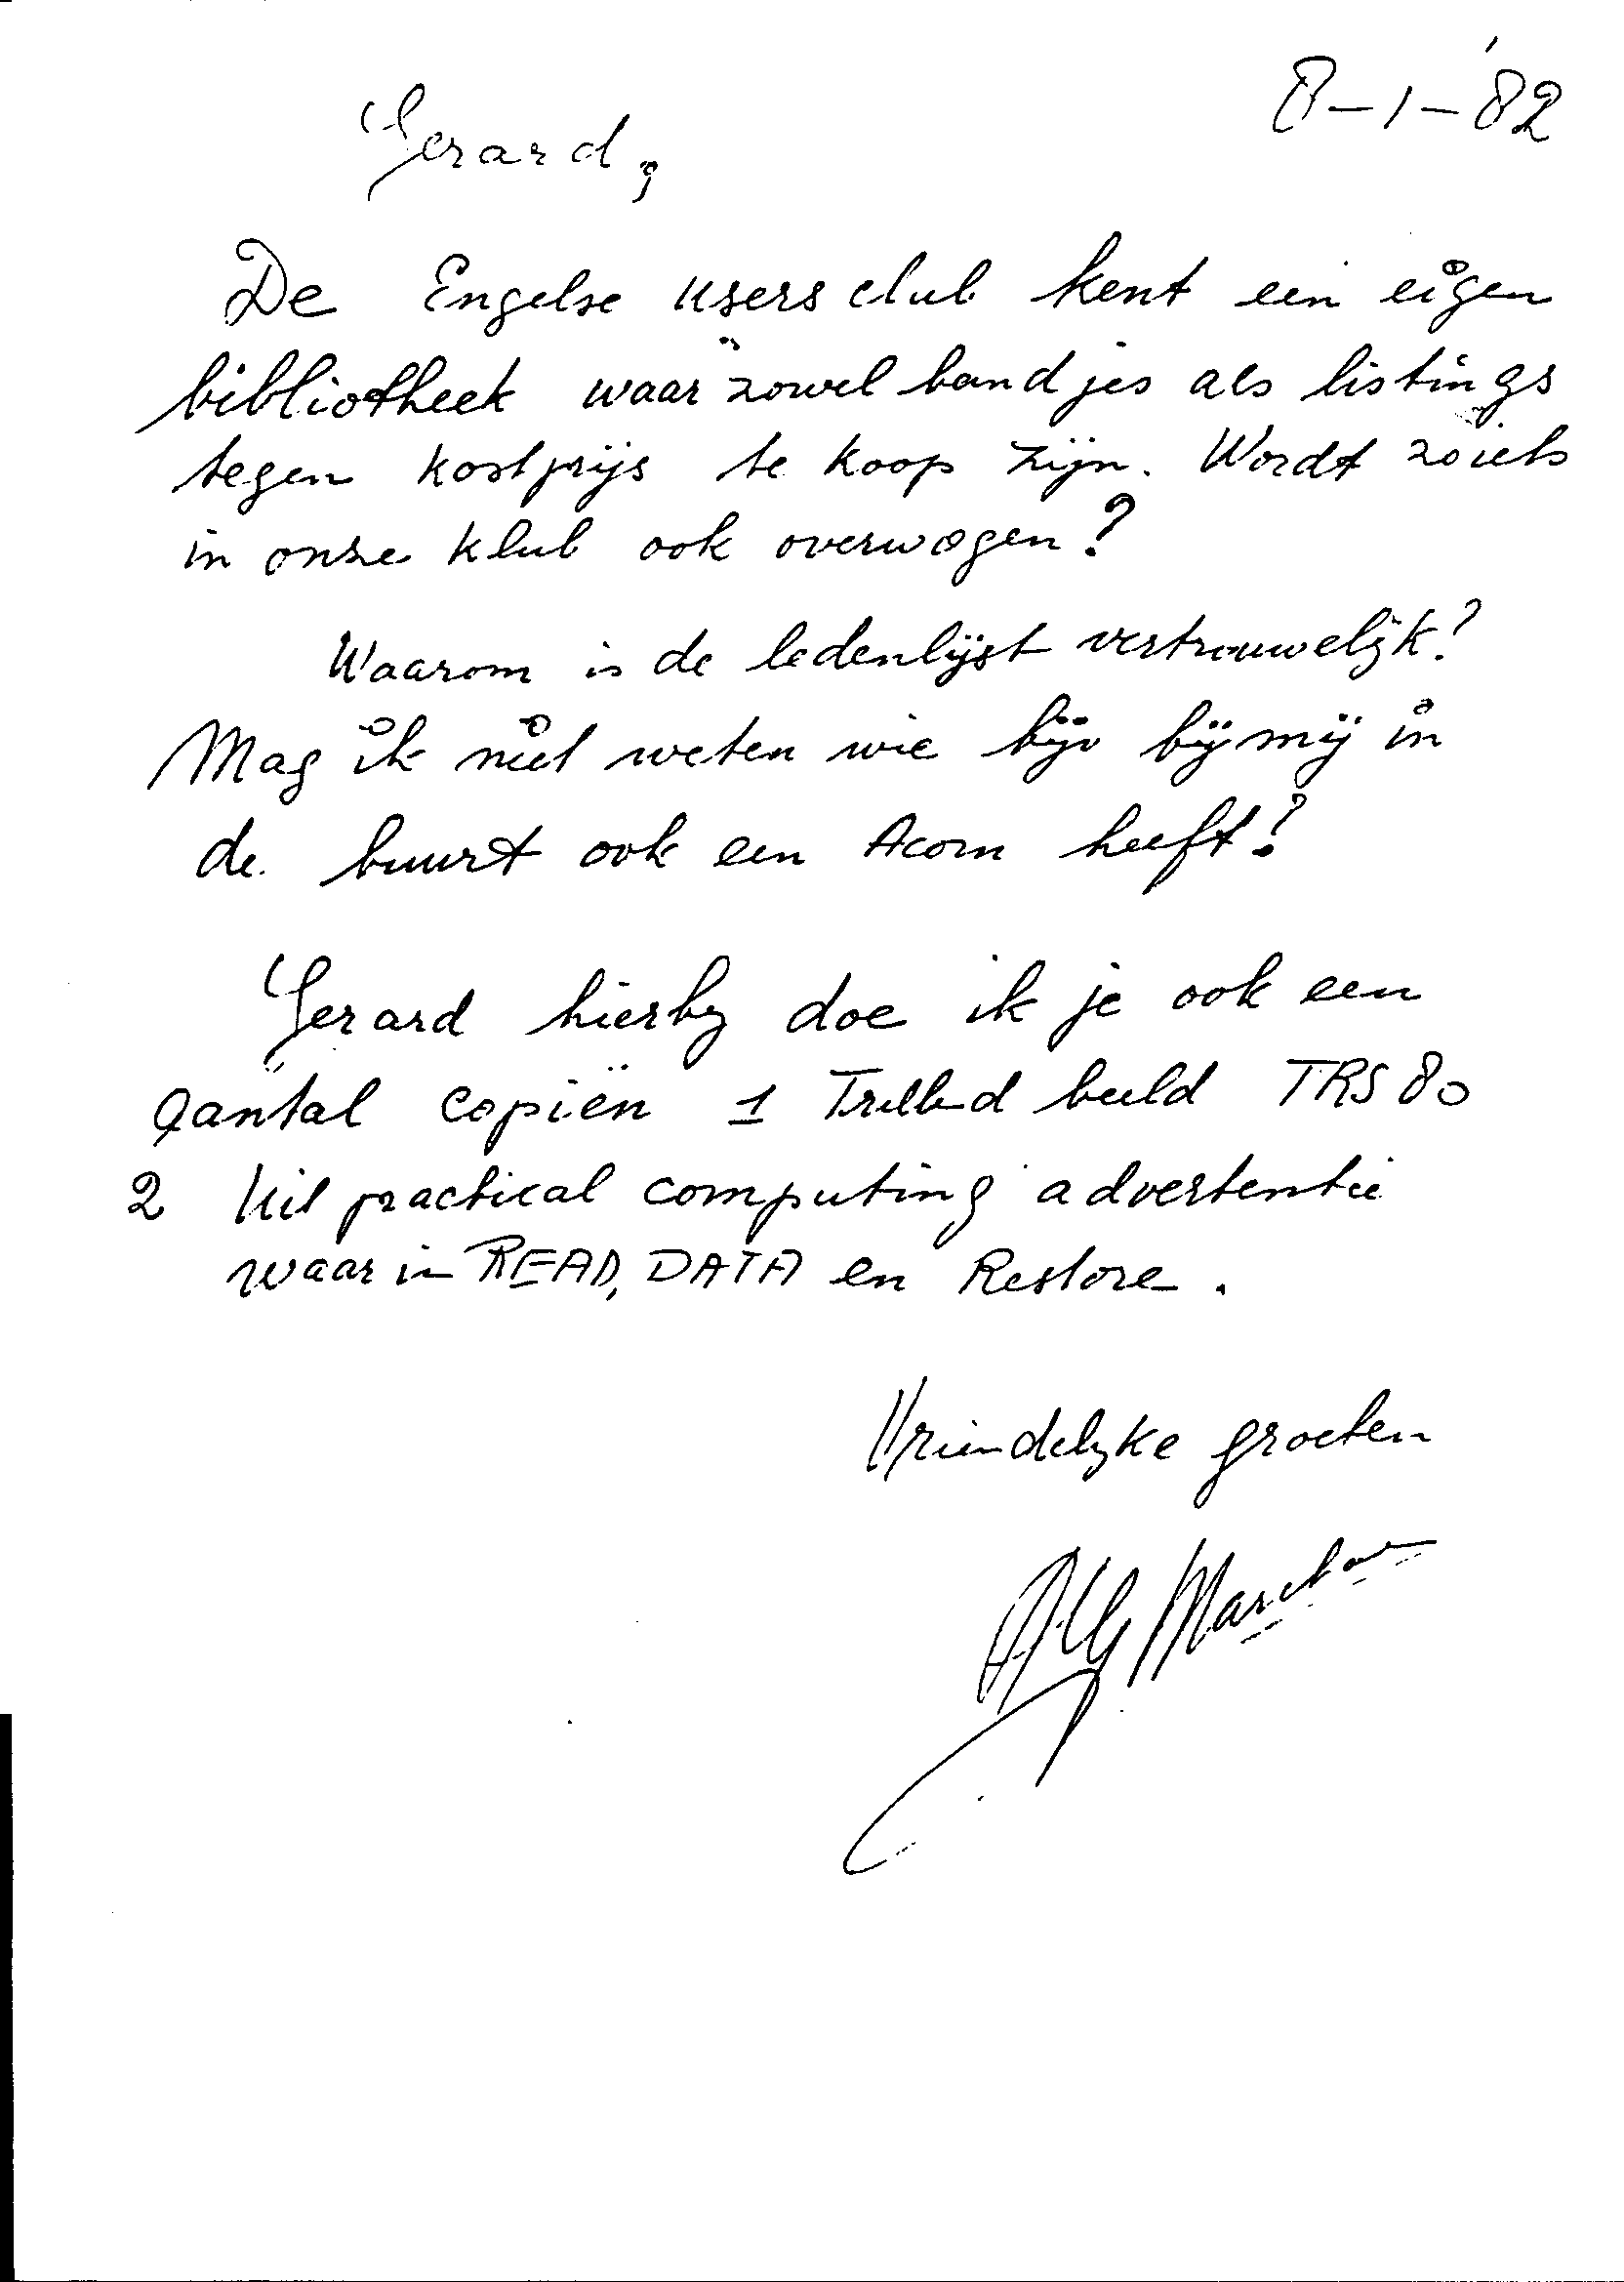 8-1-'82
Gerard,
De Engelse users club kent een eigen
bibliotheek waar zowel bandjes als listings
tegen kostprijs te koop zijn. Wordt zoiets
in onze klub ook overwogen?
Waarom is de ledenlijst vertrouwelijk?
Mag ik niet weten wie bijv bij mij in
de buurt ook een Acorn heeft?
Gerard hierby doe ik je ook een
aantal copiën 1 Trillend beeld TRS 80
2 Uit practical computing advertentie
waarin READ, DATA en Restore.
Vriendelyke groeten